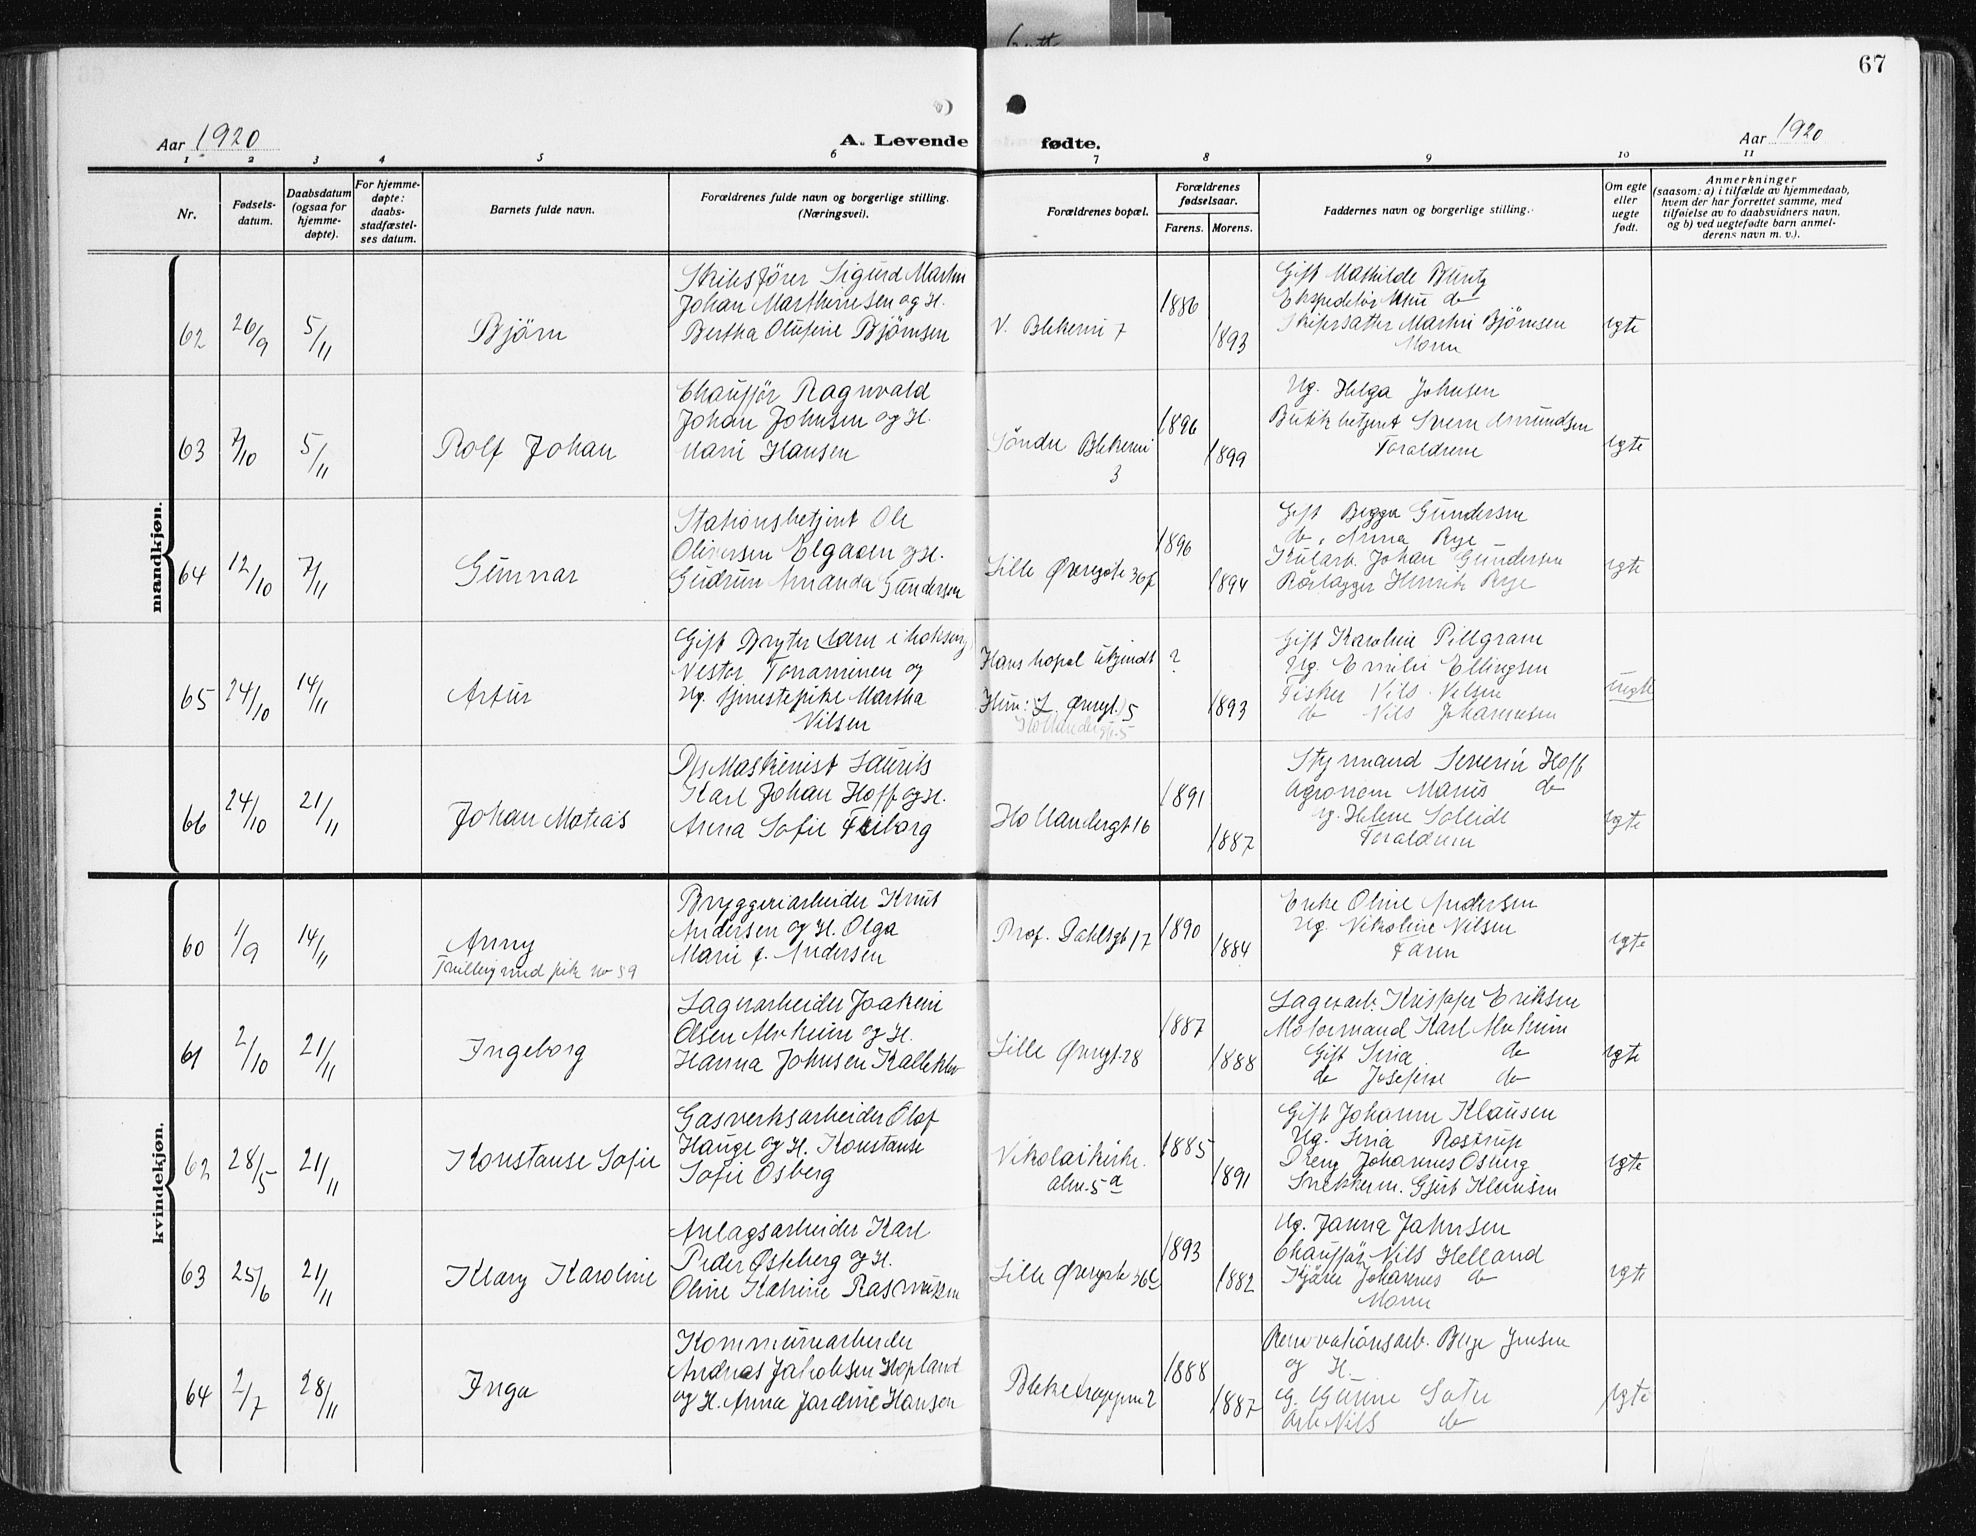 67
Aar 1920
A. Levende fødte.
Aar 1920
1 2 3 4 5 6 7 8 9 10 11
Nr.
Fødsels-
datum.
Daabsdatum
(ogsaa for
hjemme-
døpte).
For hjemme-
døpte:
daabs-
stadfæstel-
ses datum.
Barnets fulde navn.
Forældrenes fulde navn og borgerlige stilling.
(Næringsvei).
Forældrenes bopæl.
Forældrenes
fødselsaar.
Farens. Morens.
Faddernes navn og borgerlige stilling.
Om egte
eller
uegte
født.
Anmerkninger
(saasom: a) i tilfælde av hjemmedaab,
hvem der har forrettet samme, med
tilføielse av to daabsvidners navn,
og b) ved uegtefødte barn anmel-
derens navn m. v.).
mandkjøn.
62 26/9 5/11
Bjørn
Sigurd Martin
Johan Marthinsen og H.
Bertha Olufine Bjørnsen
V. Blekeri 7
1886
1893
Gift Mathilde
Ekspeditør do
Martin Bjørnsen
Moren
egte
63 7/10 5/11
Rolf Johan
Chauffør Ragnvald
Johan Johnsen og H.
Marie Hansen
Søndre Blekeri
3
1896
1899
Ug. Helga Johnsen
Butikbetjent Sverre Amundsen
Forældrene
egte
64 12/10 7/11
Gunnar
Stationsbetjent Ole
Oliversen Elgaaen og H.
Gudrun Amanda Gundersen
Lille Øvregate 36
1896
1894
Gift Gundersen
do. Anna Rye
Kularb. Johan Gundersen
Rørlægger Henrik Rye
egte
65 24/10 14/11
Artur
Gift
Vester og
Ug. tjenestepike Martha
Nilsen
Hans bopæl ukjendt
Hun: L. Øvregt. 5
Hollendergt. 5
?
1893
Gift Karoline Pillgram
Ug. Emilie Ellingsen
Fisker Nils Nilsen
do Nils Johannesen
uegte
66 24/10 21/11
Johan Matias
Maskinist Laurits
Karl Johan Hoff og H.
Anna Sofie
Hollendergt 16
1891
1887
Styrmand Severin Hoff
Agronom Marius do
ug. Helene Solleide
Forældrene
egte
kvindekjøn.
60 1/9 14/11
Anny
Tvilling med pike no 59
Bryggeriarbeider Knut
Andersen og H. Olga
Marie f. Andersen
Prof. Dahlsgt 17
1890
1884
Enke Oline Andersen
Ug. Nikoline Nilsen
Faren
egte
61 2/10 21/11
Ingeborg
Lagerarbeider Joakim
Olsen Alvheim og H.
Hanna Johnsen Kalleklev
Lille Øvregt. 28
1887
1888
Lagerarb. Kristoffer Eriksen
Motormand Karl Alvheim
Gift Siria do
do Josefine do
egte
62 28/5 21/11
Konstanse Sofie
Gasverksarbeider Olaf
Hauge og H. Konstanse
Sofie Osberg
Nikolaikirke-
alm. 5a
1885
1891
Gift Johanne Klausen
Ug. Siria Rostrup
Dreng Johannes Osberg
Snekkerm. Gjert Klausen
egte
63 25/6 21/11
Klary Karoline
Anlagsarbeider Karl
Peder Østeberg og H.
Oline Katrine Rasmussen
Lille Øvregate 36
1893
1882
Ug. Janna Jahnsen
Chauffør Nils Helland
Johannes do
Moren
egte
64 2/7 28/11
Inga
Kommunearbeider
Andreas Jakobsen Hopland
og H. Anna Jardine Hansen
Bleketrappen 2
1888
1887
Renovationsarb. Jensen
og H.
G. Gurine
Arb Nils do
egte